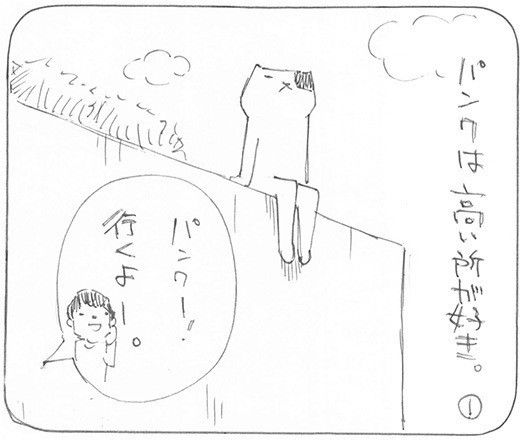 パンクは高い所が好き。①
パンクー!
行くよー。